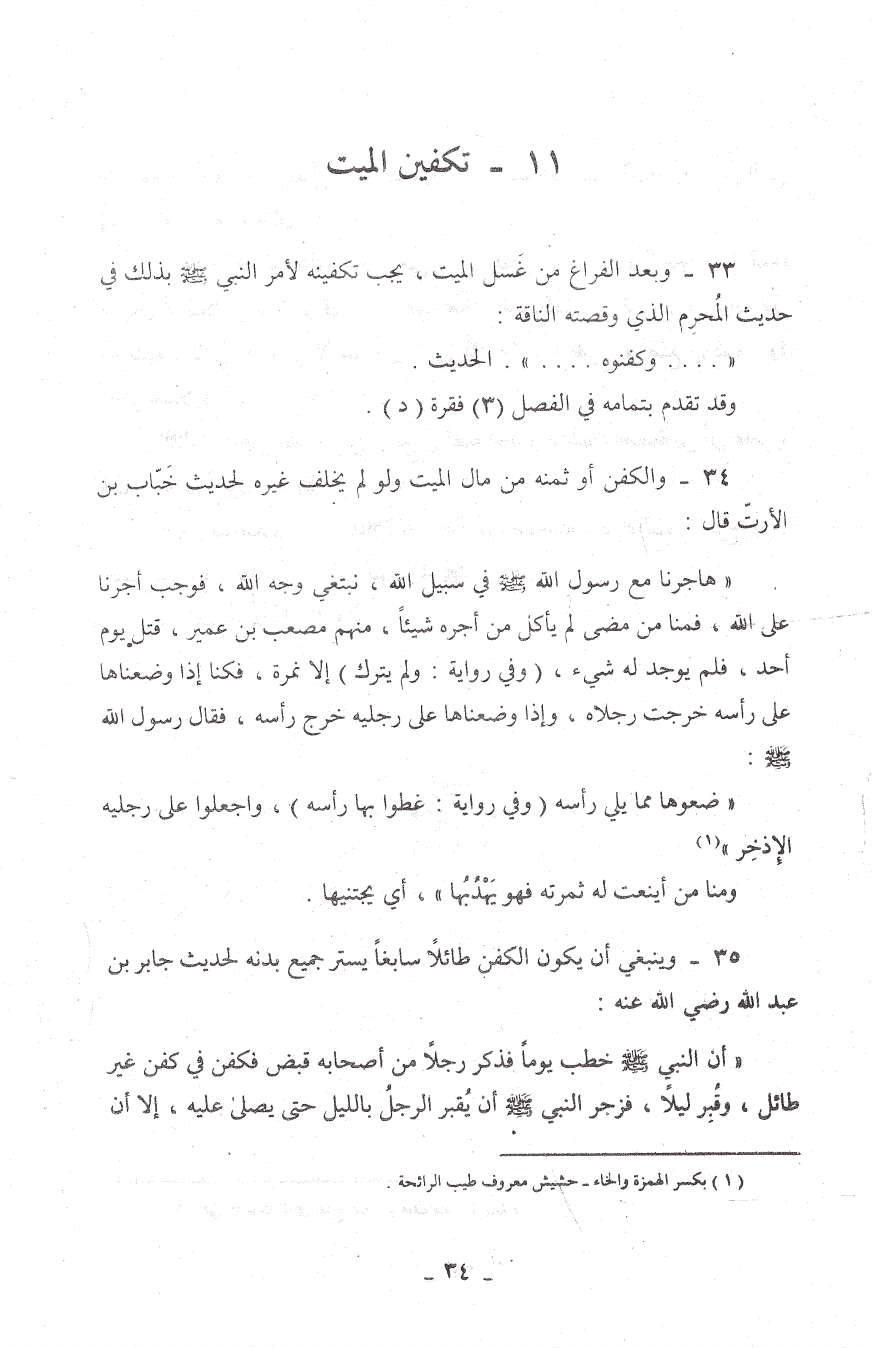 ١١ - تكفين الميت
٣٣ - وبعد الفراغ من غَسل الميت ، يجب تكفينه لأمر النبي ﷺ بذلك في
حديث المُحرِم الذي وقصته الناقة :
« .... وكفنوه .... » . الحديث .
وقد تقدم بتمامه في الفصل (٣) فقرة ( د ) .
٣٤ - والكفن أو ثمنه من مال الميت ولو لم يخلف غيره لحديث خَبّاب بن
الأرتّ قال :
« هاجرنا مع رسول الله ﷺ في سبيل الله ، نبتغي وجه الله ، فوجب أجرنا
على الله ، فمنا من مضى لم يأكل من أجره شيئاً ، منهم مصعب بن عمير ، قتل يوم
أحد ، فلم يوجد له شيء ، ( وفي رواية : ولم يترك ) إلا نمرة ، فكنا إذا وضعناها
على رأسه خرجت رجلاه ، وإذا وضعناها على رجليه خرج رأسه ، فقال رسول الله
ﷺ :
« ضعوها مما يلي رأسه ( وفي رواية : غطوا بها رأسه ) ، واجعلوا على رجليه
الإِذخِر »(١)
ومنا من أينعت له ثمرته فهو يَهْدُبُها » ، أي يجتنيها .
٣٥ - وينبغي أن يكون الكفن طائلًا سابغاً يستر جميع بدنه لحديث جابر بن
عبد الله رضي الله عنه :
« أن النبي ﷺ خطب يوماً فذكر رجلًا من أصحابه قبض فكفن في كفن غير
طائل ، وقُبِر ليلًا ، فزجر النبي ﷺ أن يُقبر الرجلُ بالليل حتى يصلىٰ عليه ، إلا أن
(١) بكسر الهمزة والخاء - حشيش معروف طيب الرائحة .
- ٣٤ -